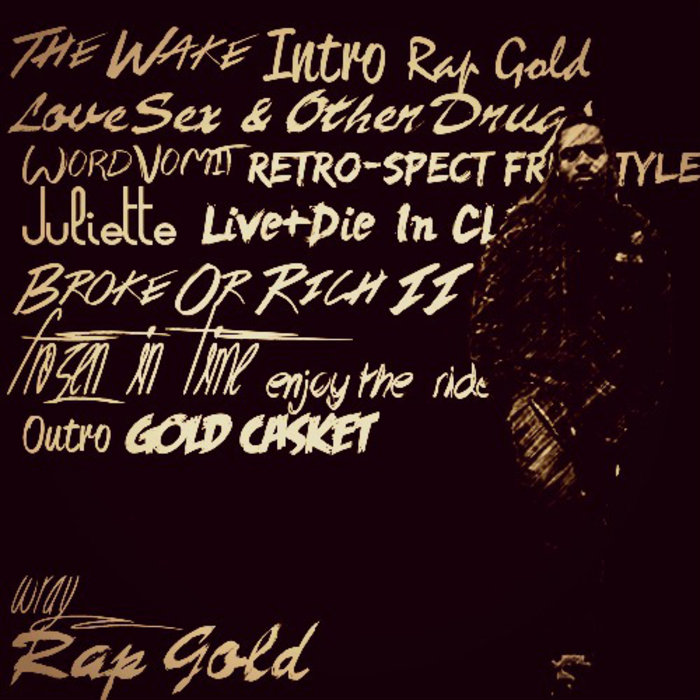 THE WAKE Intro Rap Gold
Love Sex & Other Drugs
WORD VOMIT RETRO-SPECT FR TYLE
Juliette Live+Die In CL
BROKE OR RICH II
frozen in time enjoy the ride
Outro GOLD CASKET
wray
Rap Gold